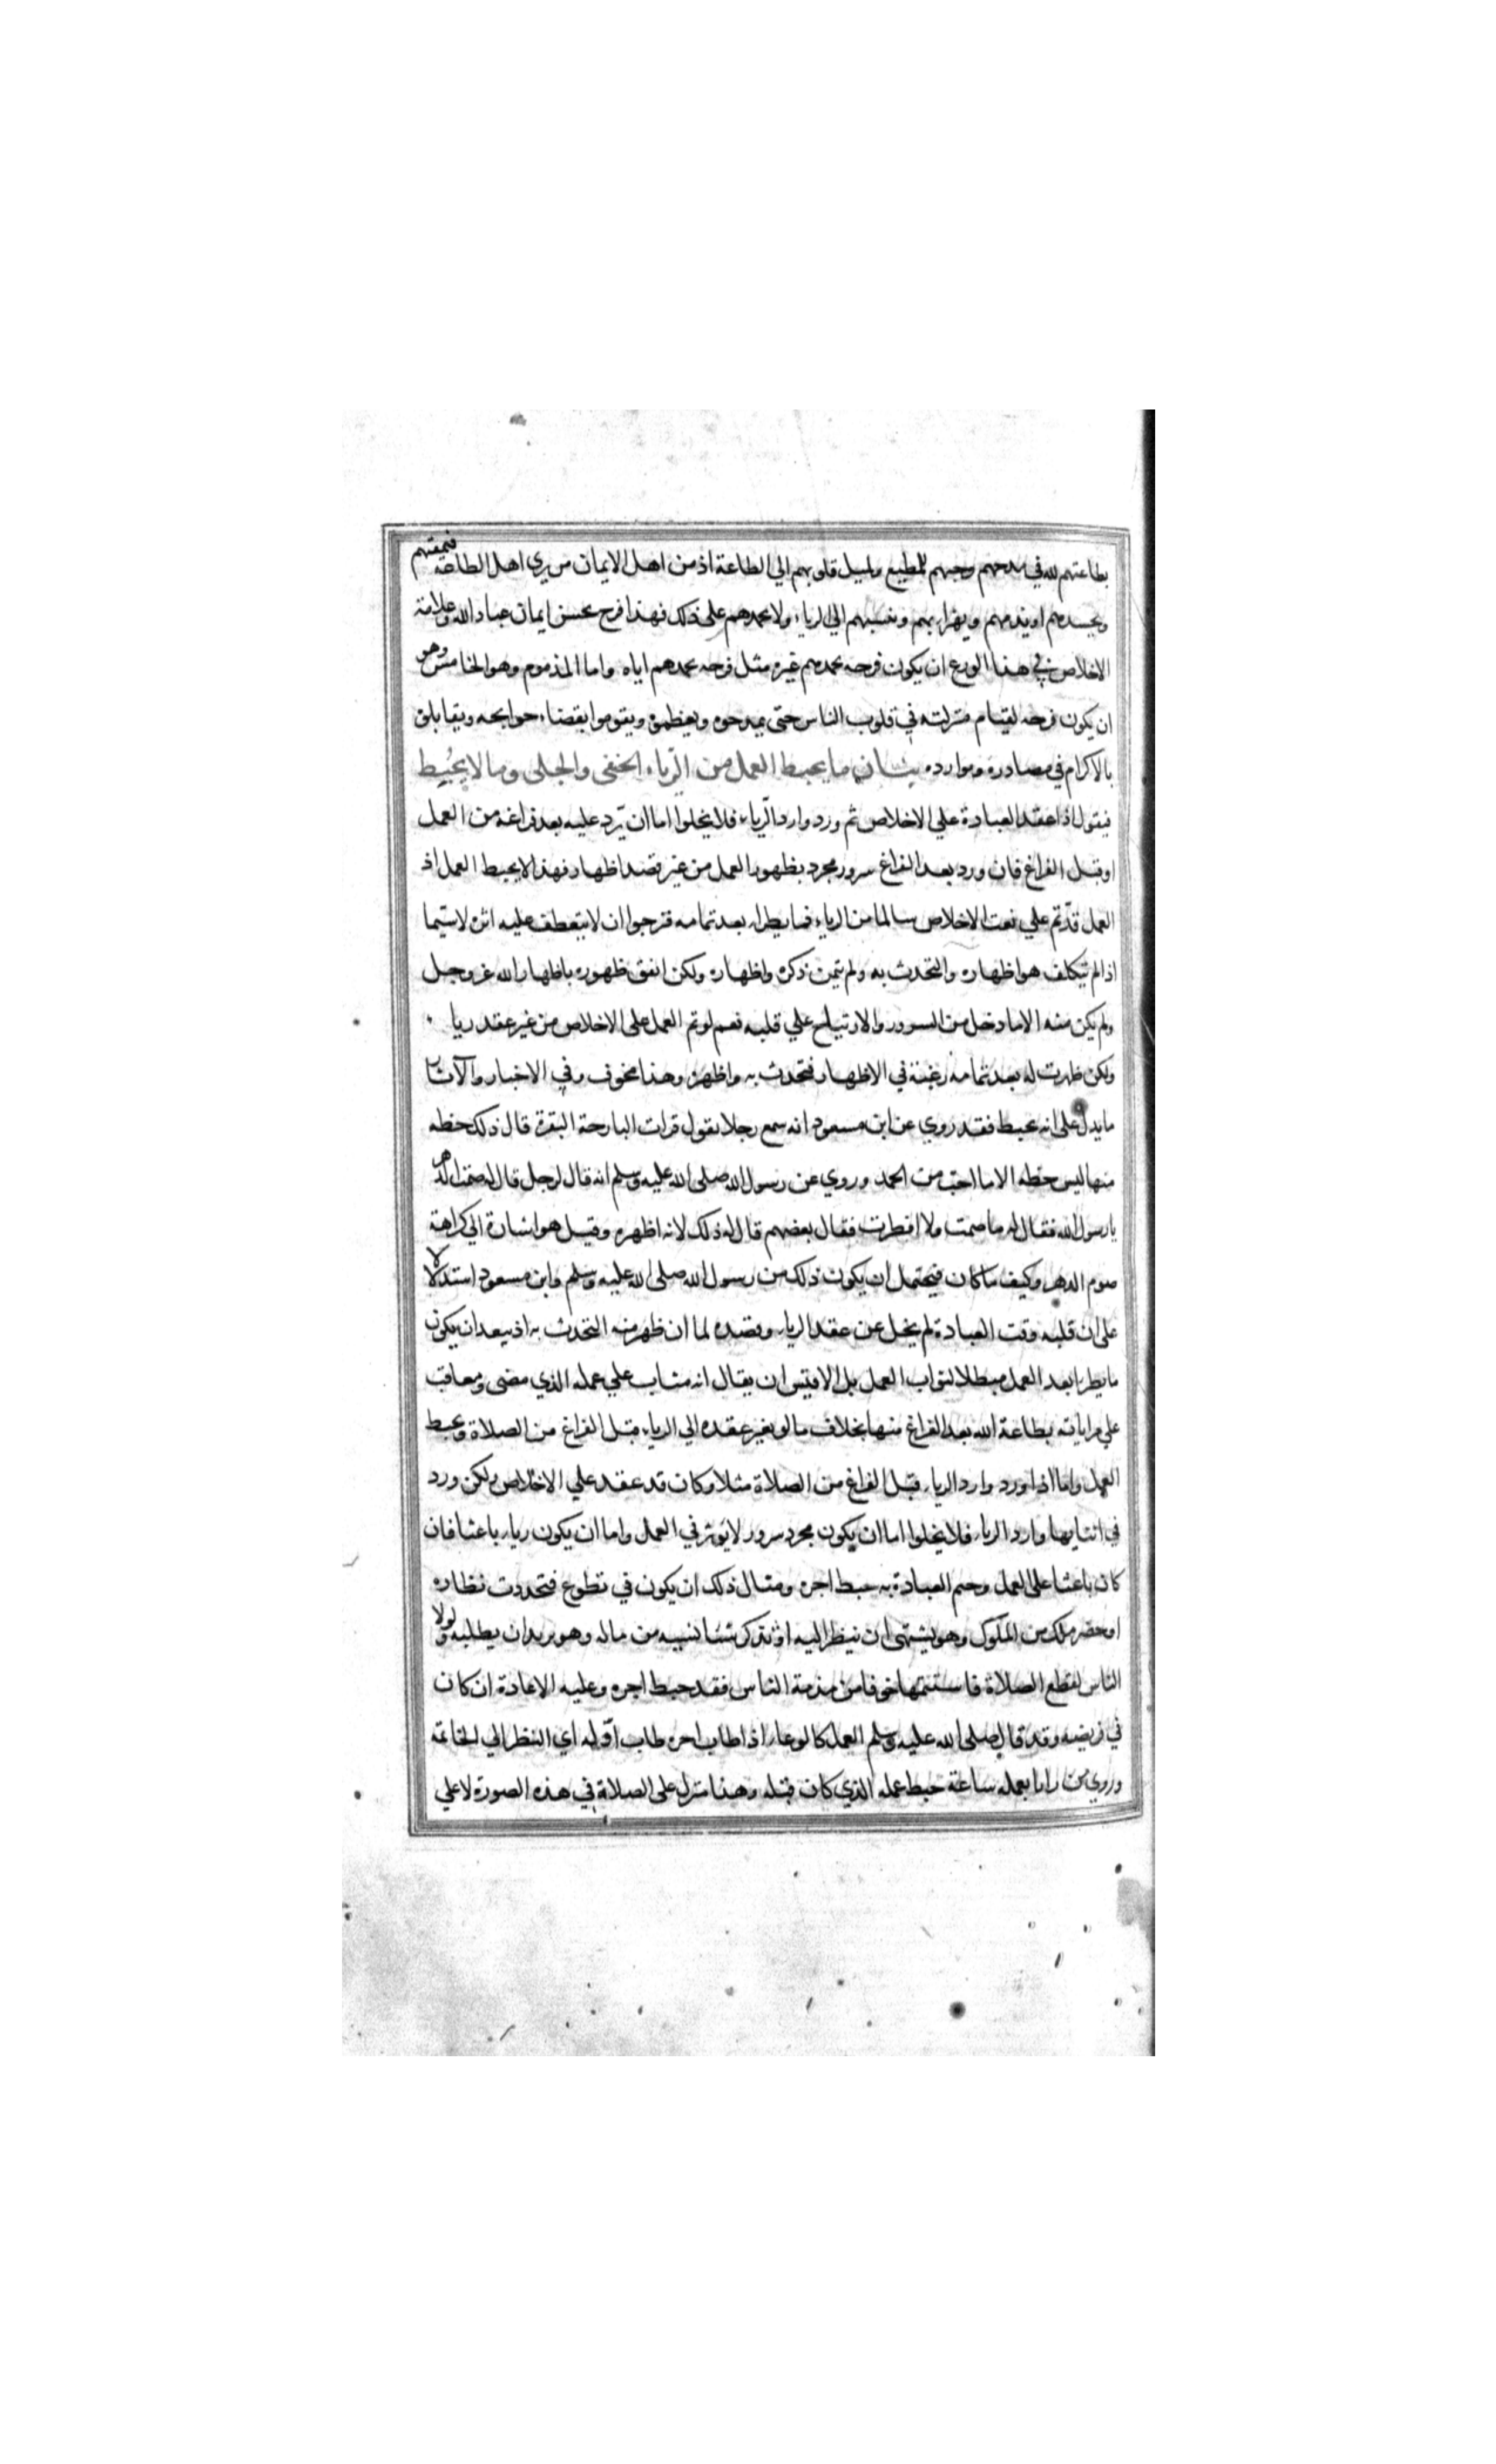 بطاعتهم لله في مدحهم وحبهم للمطيع ولميل قلوبهم الي الطاعة اذ من اهل الايمان من يري اهل الطاعة فيمقتهم
ويحسدهم او يذمهم ويهزا بهم وينسبهم الي الرياء ولا يحمدهم على ذلك فهذا فرح بحسن ايمان عباد الله وعلامة
الاخلاص في هذا النوع ان يكون فرحه بحمدهم غيره مثل فرحه بحمدهم اياه واما المذموم وهو الخامس وهو
ان يكون فرحه لقيام منزلته في قلوب الناس حتى يمدحوه ويعظموه ويقوموا بقضاء حوايجه ويقابلوه
بالاكرام في مصادره وموارده بيان ما يحبط العمل من الرياء الخفى والجلى وما لا يحبط
فيقول اذا عقد العبادة علي الاخلاص ثم ورد وارد الرياء فلا يخلوا اما ان يرد عليه بعد فراغه من العمل
او قبل الفراغ فان ورد بعد الفراغ سرور مجرد بظهور العمل من غير قصد اظهار فهذا لا يحبط العمل اذ
العمل قد تم علي نعت الاخلاص سالما من الرياء فما يطرا بعد تمامه فنرجوا ان لا ينعطف عليه اثره لا سيما
اذا لم يتكلف هو اظهاره والتحدث به ولم يتمن ذكره واظهاره ولكن اتفق ظهوره باظهار الله عز وجل
ولم يكن منه الا ما دخل من السرور والارتياح علي قلبه نعم لو تم العمل على الاخلاص من غير عقد ريا
ولكن ظهرت له بعد تمامه رغبة في الاظهار فتحدث به واظهره وهذا مخوف وفي الاخبار والآثار
ما يدل على انه محبط فقد روي عن ابن مسعود انه سمع رجلا يقول قرات البارحة البقرة قال ذلك حظه
منها ليس حظه الا ما احب من الحمد وروي عن رسول الله صلى الله عليه وسلم انه قال لرجل قال له صمت الدهر
يا رسول الله فقال له ما صمت ولا افطرت فقال بعضهم قال له ذلك لانه اظهره وقيل هو اشارة الي كراهة
صوم الدهر وكيف ما كان فيحتمل ان يكون ذلك من رسول الله صلى الله عليه وسلم وابن مسعود استدلالا
على ان قلبه وقت العبادة لم يخل عن عقد الرياء وقصده لما ان ظهر منه التحدث به اذ يبعد ان يكون
ما يطرا بعد العمل مبطلا لثواب العمل بل الاقيس ان يقال انه مثاب علي عمله الذي مضى ومعاقب
علي مراياته بطاعة الله بعد الفراغ منها بخلاف ما لو تغير عقده الي الرياء قبل الفراغ من الصلاة ويحبط
العمل واما اذا ورد وارد الرياء قبل الفراغ من الصلاة مثلا وكان قد عقد علي الاخلاص ولكن ورد
في اثنايها وارد الرياء فلا يخلوا اما ان يكون مجرد سرور لا يوثر في العمل واما ان يكون رياء باعثا فان
كان باعثا على العمل وختم العبادة به حبط اجره ومثال ذلك ان يكون في تطوع فتجددت نظاره
او حضر ملك من الملوك وهو يشتهى ان ينظر اليه او يذكر شيئا نسيه من ماله وهو يريد ان يطلبه ولولا
الناس لقطع الصلاة فاستتمها خوفا من مذمة الناس فقد حبط اجره وعليه الاعادة ان كان
في فريضه وقد قال صلى الله عليه وسلم العمل كالوعاء اذا طاب اخره طاب اوله اي النظر الي الخاتمة
وروي من رايا بعمله ساعة حبط عمله الذي كان قبله وهذا منزل على الصلاة في هذه الصورة لا علي